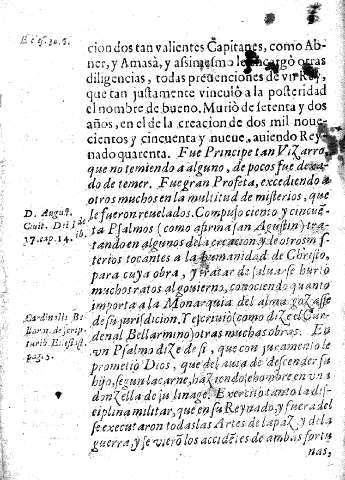 Ecles. 30. 5.
cion dos tan valientes Capitanes, como Ab-
ner, y Amasà, y assimesmo le encargò otras
diligencias, todas preuenciones de vn Rey,
que tan justamente vinculò a la posteridad
el nombre de bueno. Murió de setenta y dos
años, en el de la creacion de dos mil noue-
cientos y cincuenta y nueue, auiendo Rey-
nado quarenta. Fue Principe tan Vizarro,
que no temiendo a alguno, de pocos fue dexa-
do de temer. Fue gran Profeta, excediendo a
otros muchos en la multitud de misterios, que
le fueron reuelados. Compuso ciento y cincuē-
ta Psalmos (como afirma san Agustin) tra-
tando en algunos de la creacion, y de otros mis-
terios tocantes a la humanidad de Christo,
para cuya obra, y tratar de saluarse hurtò
muchos ratos al gouierno, conociendo quanto
importa a la Monarquia del alma gozasse
de su jurisdicion. Y escriuiò (como dize el Car-
denal Bellarmino) otras muchas obras. En
vn Psalmo dize de si, que con juramento le
prometiò Dios, que del auia de descender su
hijo, segun la carne, haziendose hombre en vna
donzella de su linage. Exercitò tanto la dis-
ciplina militar, que en su Reynado, y fuera del
se executaron todas las Artes de la paz, y de la
guerra, y se vierō los accidētes de ambas fortu-
nas,
D. August.
Ciuit. Dei l.
17. cap. 14.
Cardinalis Be
llarm. de scrip
turis Ecclesiast.
pag. 5.